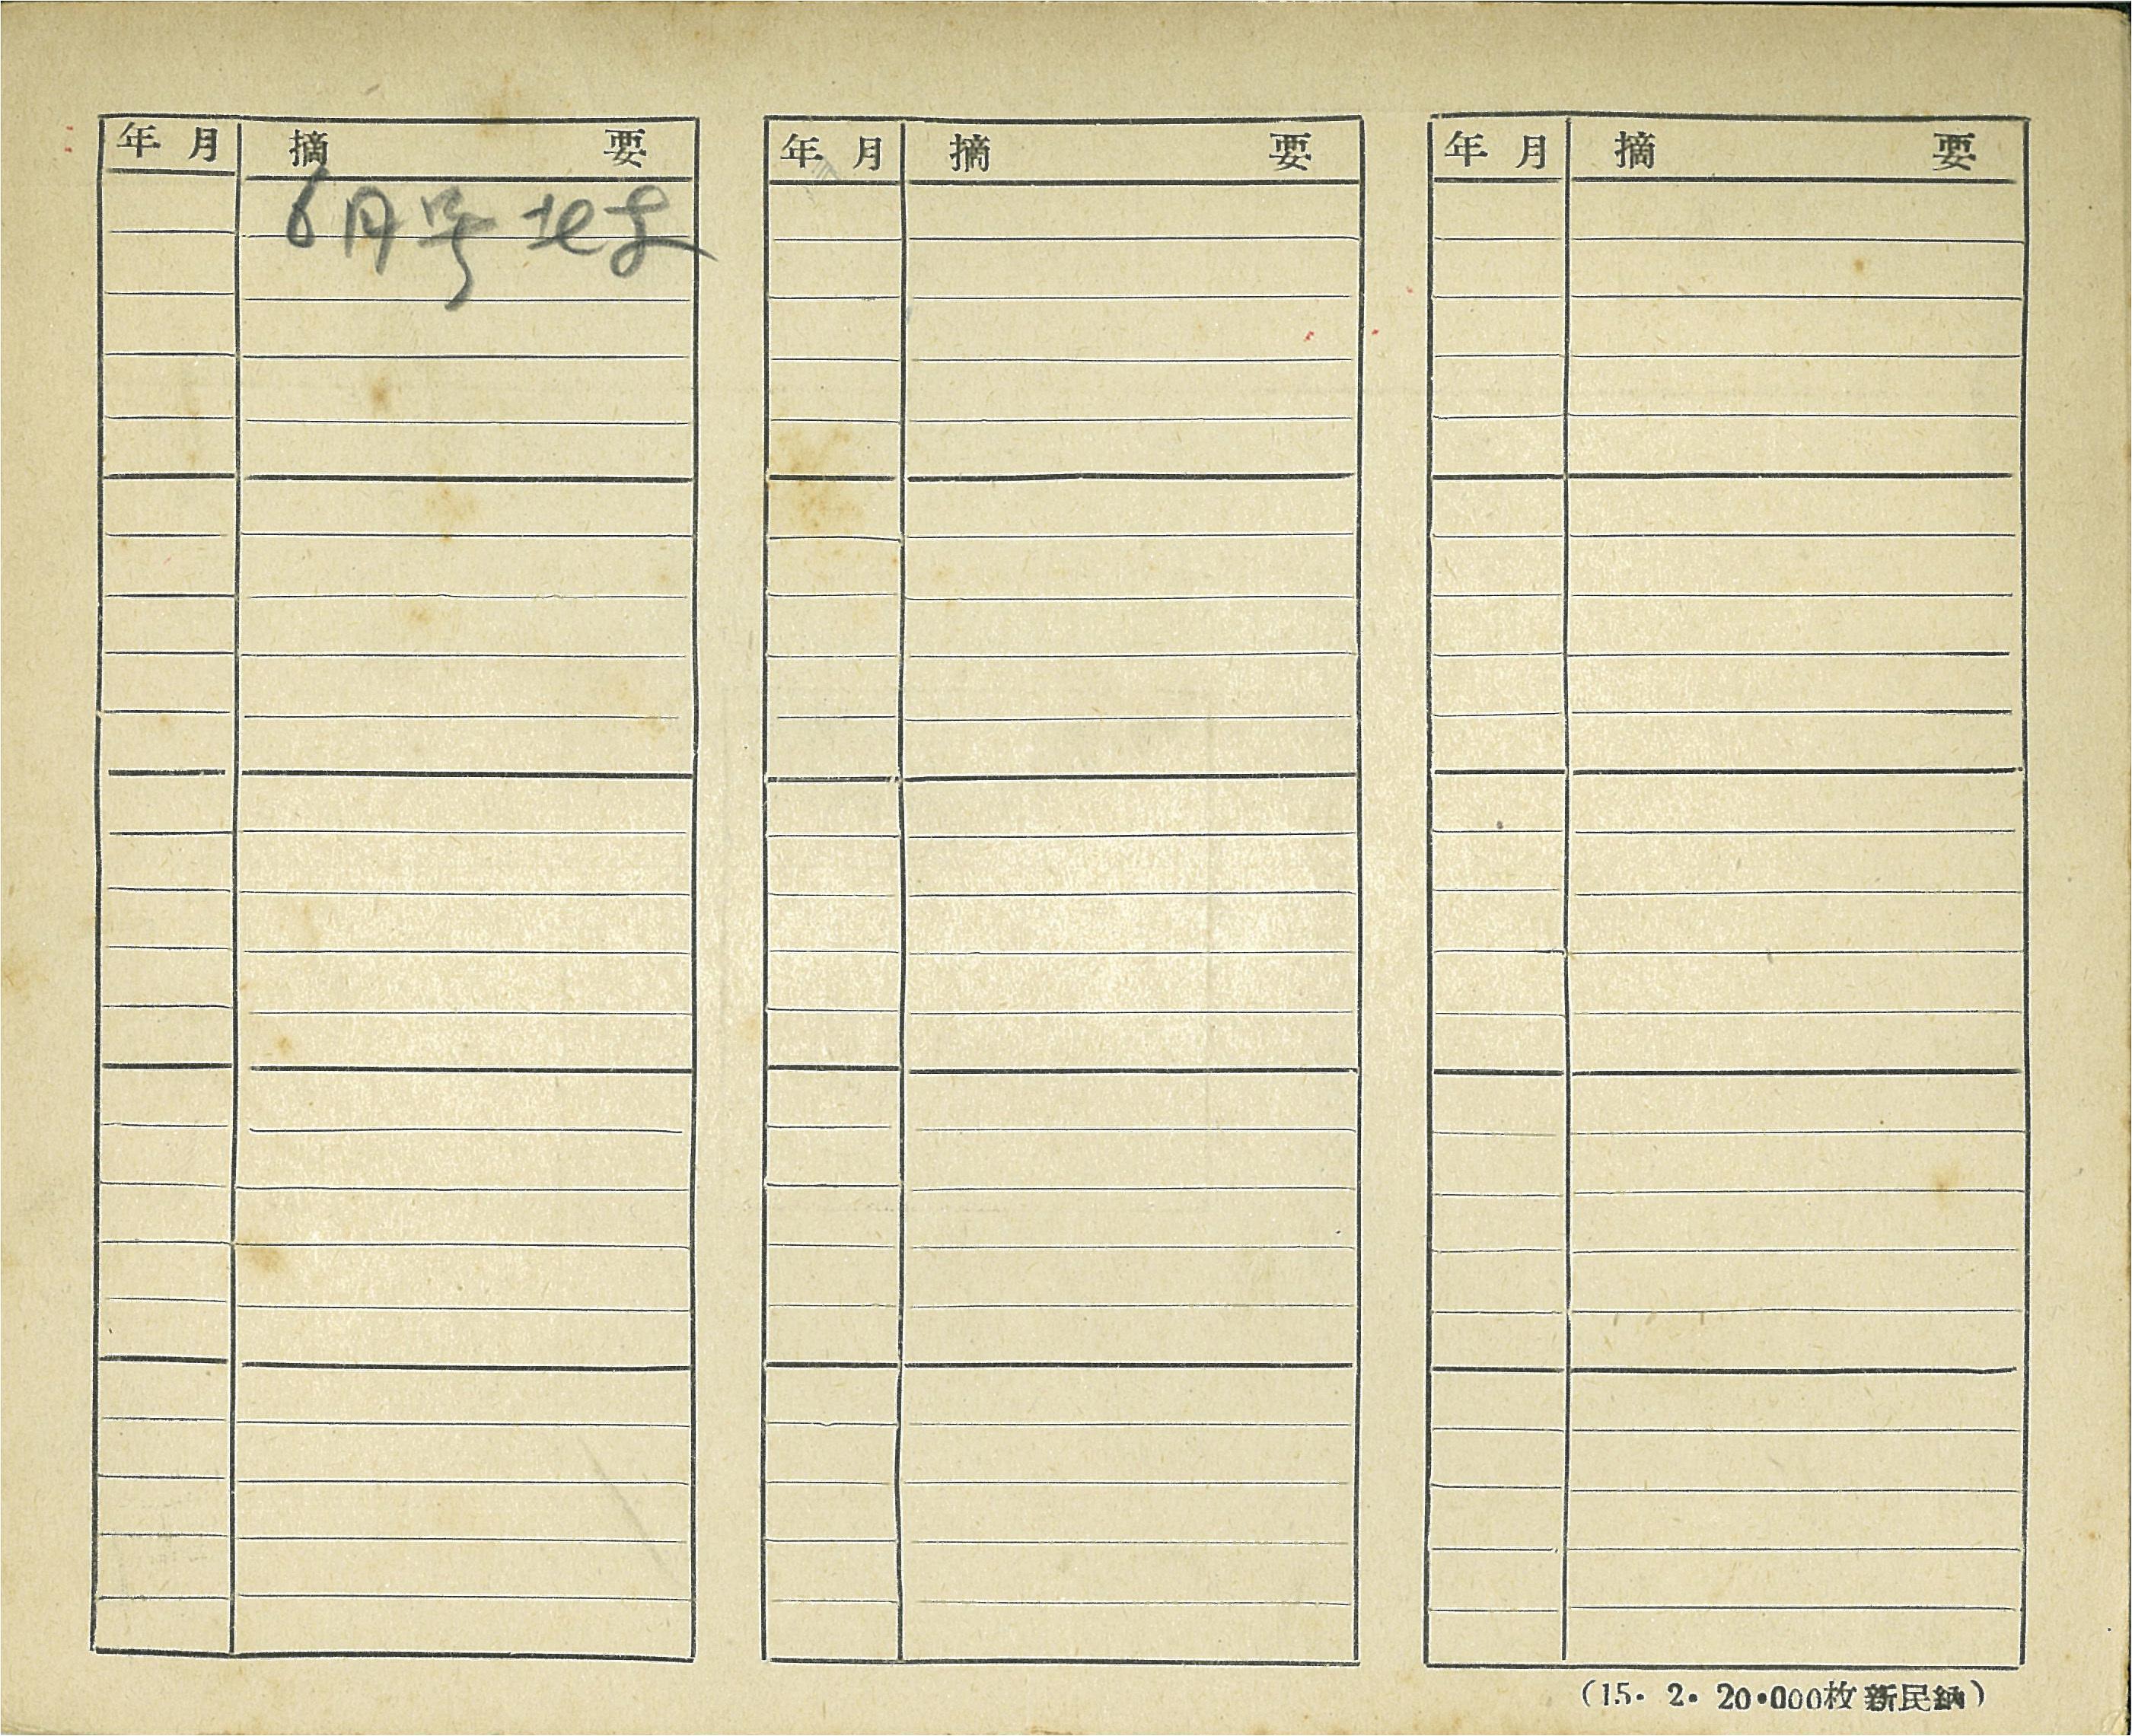 年 月 摘 要
6月号 北支
年 月 摘 要
年 月 摘 要
(15・2・20・000枚 新民納)